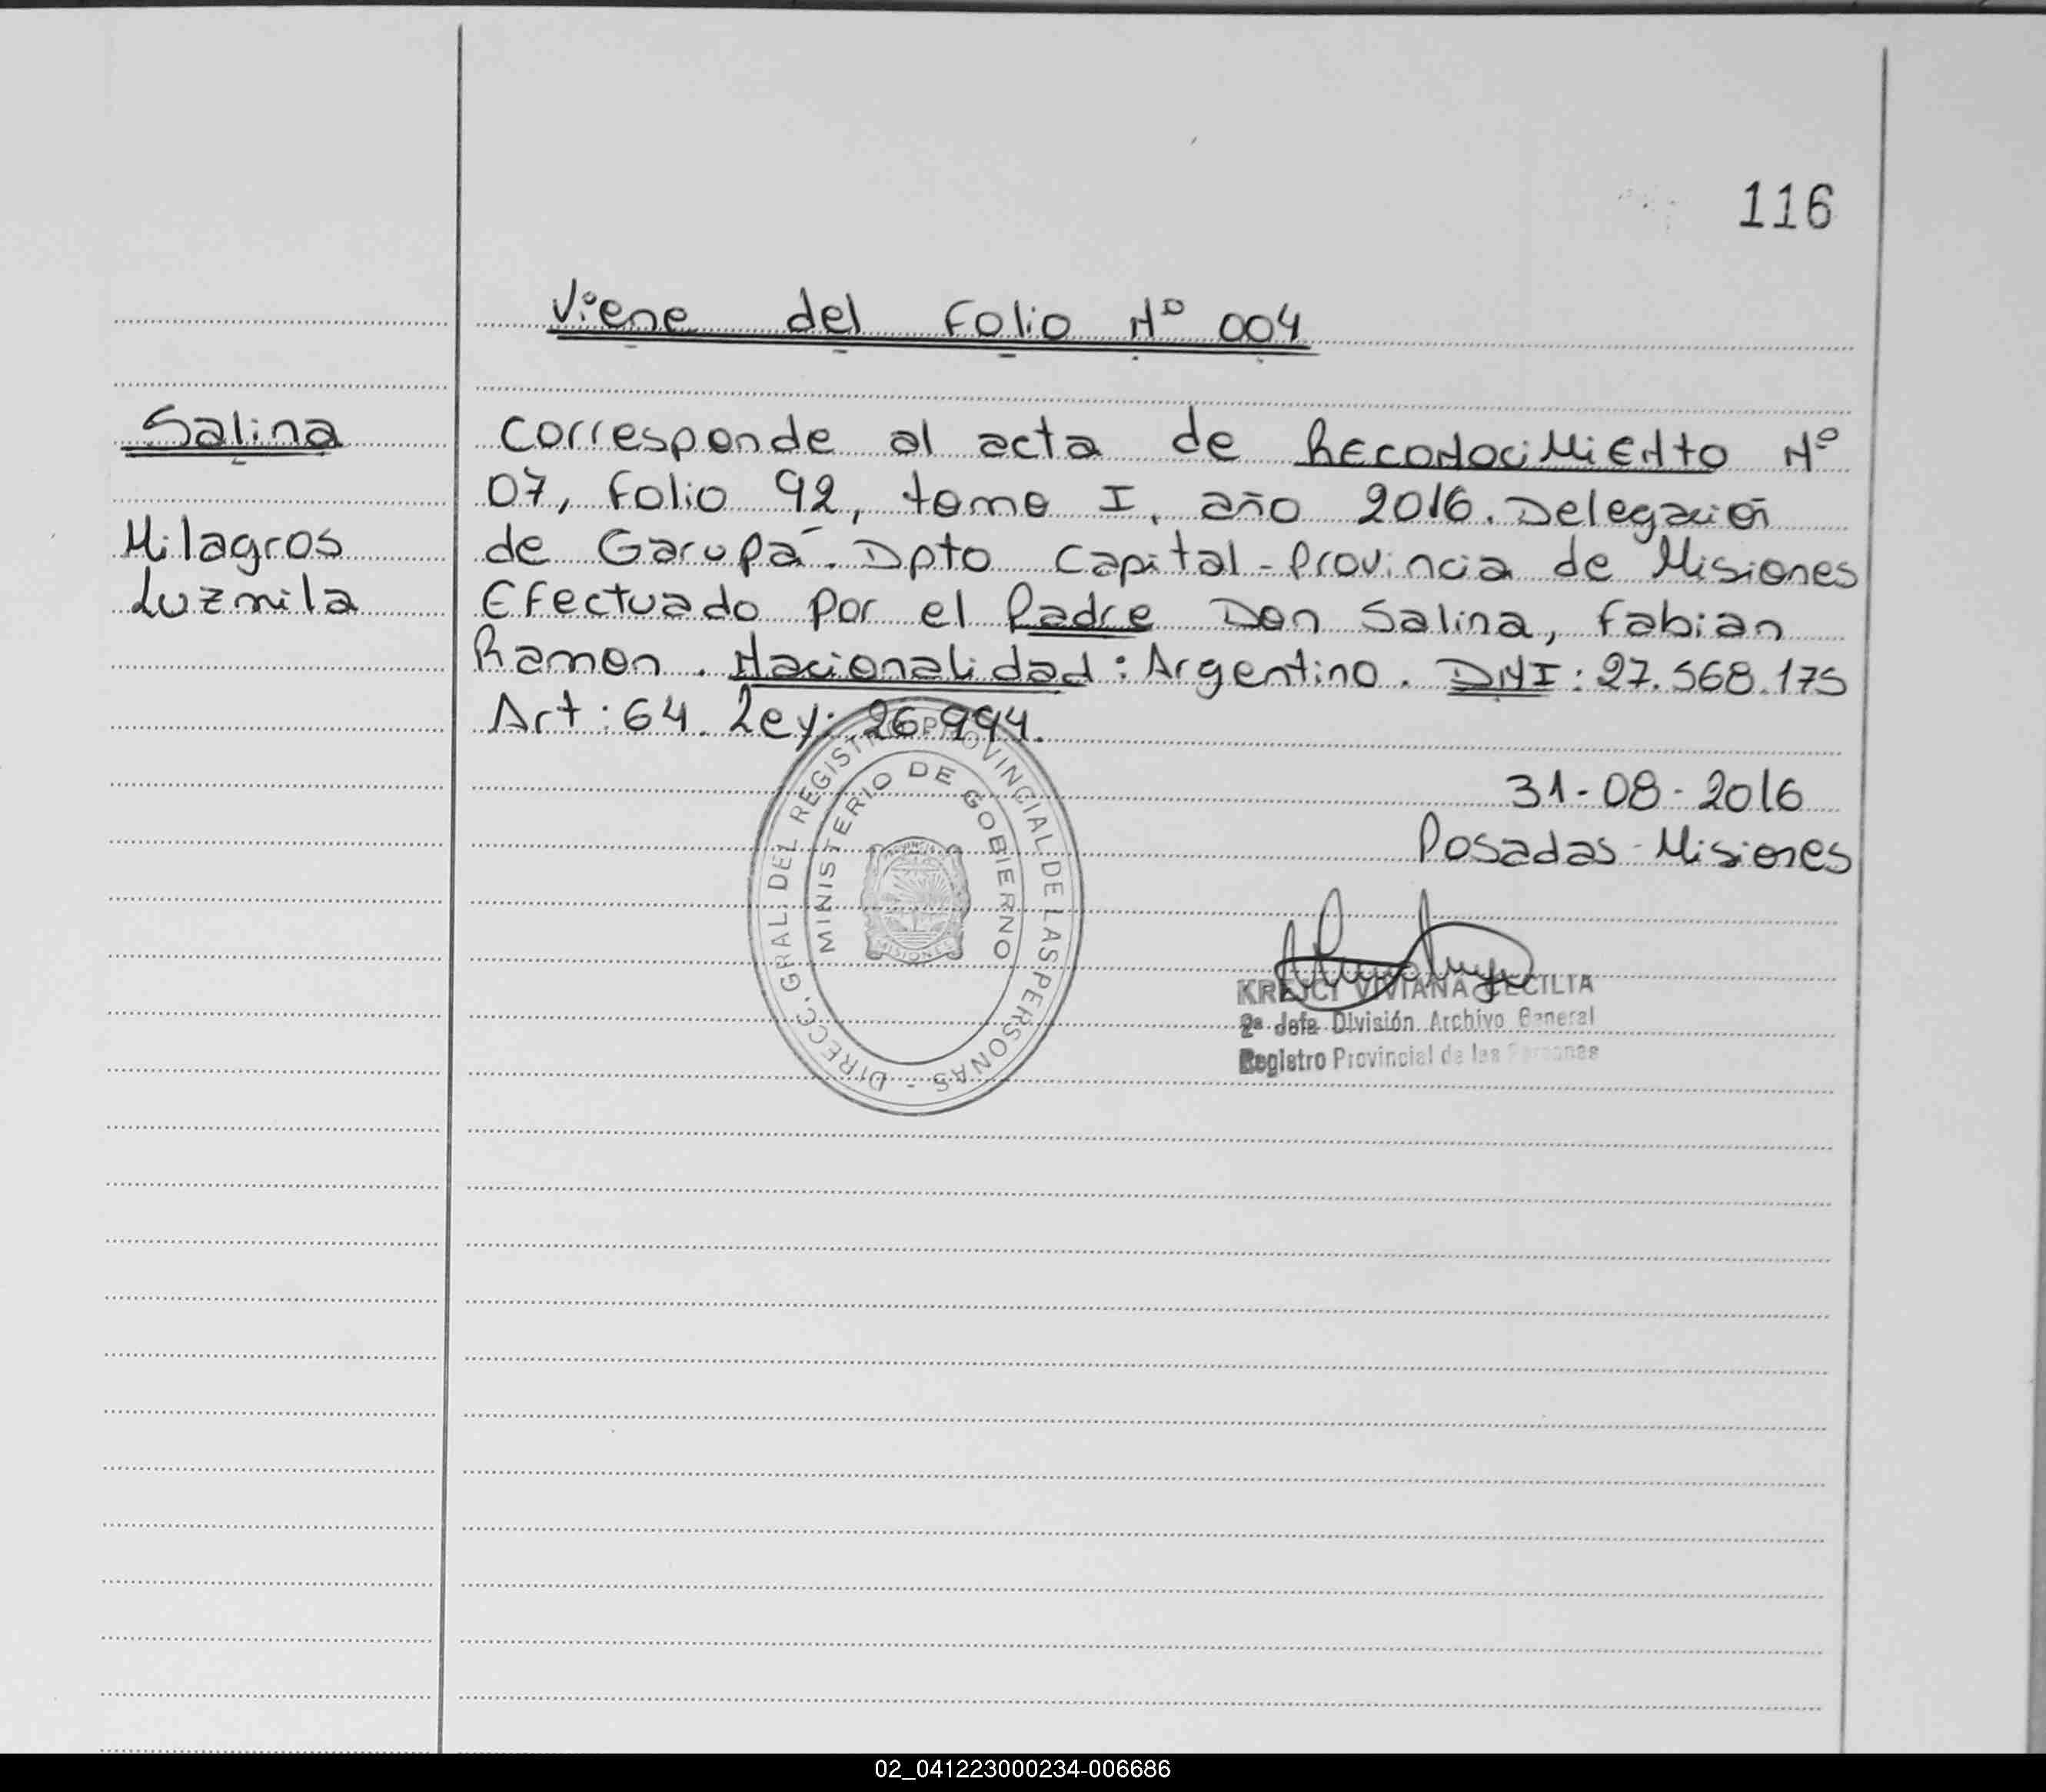 116
Viene del Folio Nº 004
Salina
Milagros
Luzmila
Corresponde al acta de Reconocimiento Nº
07, Folio 92, tomo I, año 2016. Delegación
de Garupá. Dpto Capital - Provincia de Misiones
Efectuado por el Padre Don Salina, Fabian
Ramon. Nacionalidad: Argentino. DNI: 27.568.175
Art: 64. Ley: 26.994.
31-08-2016
Posadas - Misiones
DIRECC. GRAL. DEL REGISTRO PROVINCIAL DE LAS PERSONAS -
MINISTERIO DE GOBIERNO
PROVINCIA
MISIONES
KREJCI VIVIANA CECILIA
2ª Jefa División Archivo General
Registro Provincial de las Personas
02_041223000234-006686